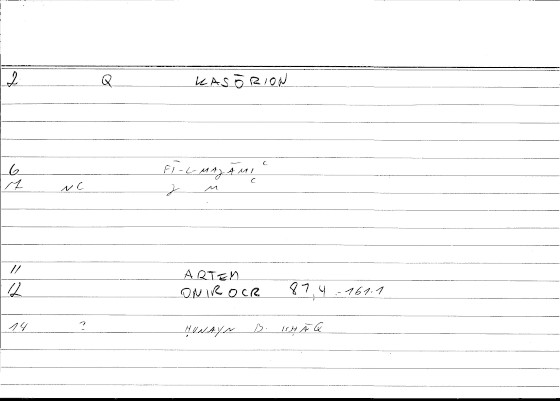 2 Q KASŌRION
6 FĪ-L-MAǦĀMIᶜ
11 NC J M ᶜ
11 ARTEM
12 ONIROCR 87,4 - 161.1
14 ? HUNAYN B. ISHĀQ